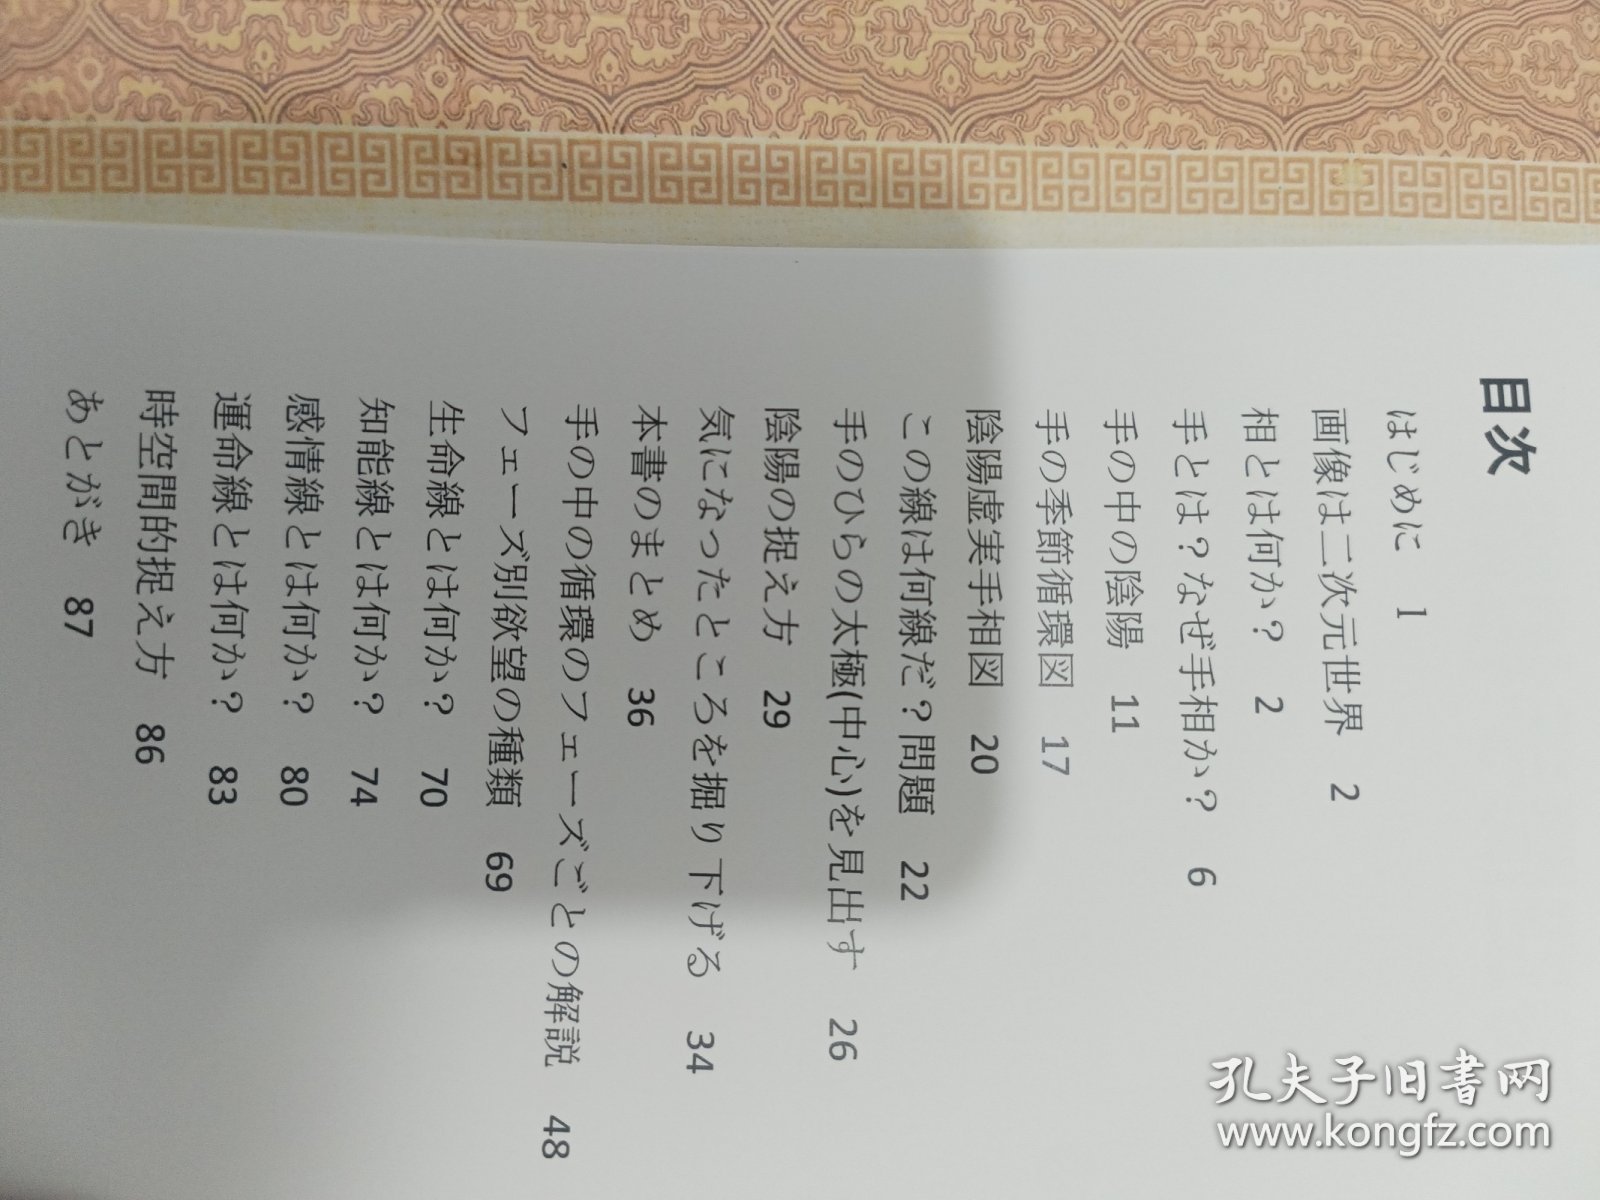 目次
はじめに 1
画像は二次元世界 2
相とは何か？ 2
手とは？なぜ手相か？ 6
手の中の陰陽 11
手の季節循環図 17
陰陽虚実手相図 20
この線は何線だ？問題 22
手のひらの太極(中心)を見出す 26
陰陽の捉え方 29
気になったところを掘り下げる 34
本書のまとめ 36
手の中の循環のフェーズごとの解説 48
フェーズ別欲望の種類 69
生命線とは何か？ 70
知能線とは何か？ 74
感情線とは何か？ 80
運命線とは何か？ 83
時空間的捉え方 86
あとがき 87
孔夫子旧書网
www.kongfz.com